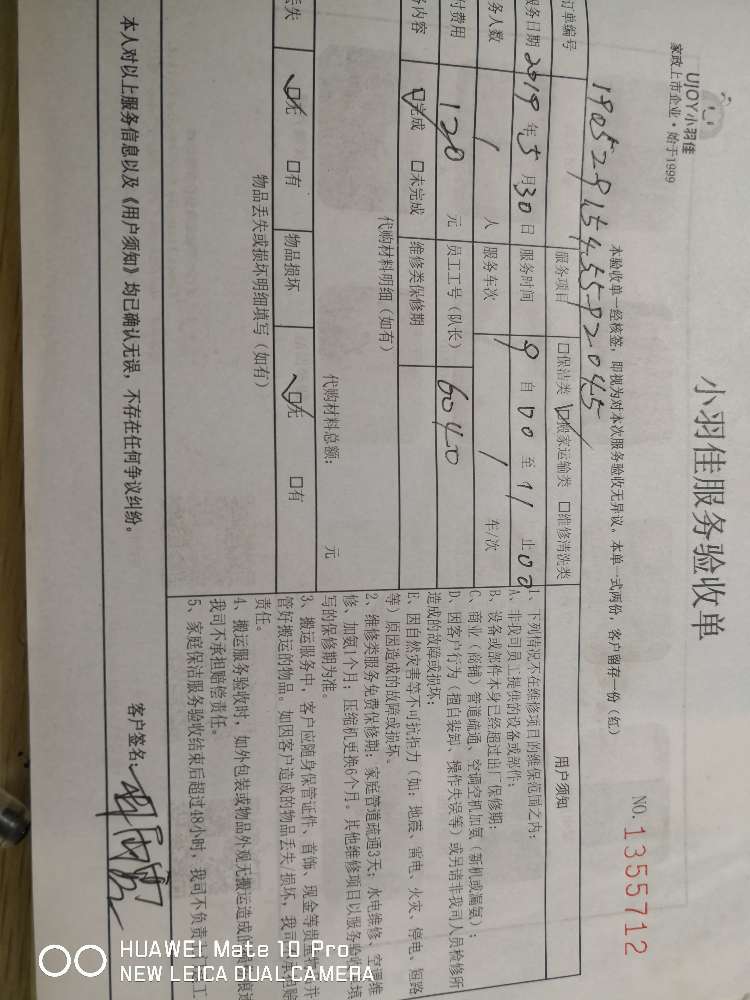 UJOY小羽佳
家政上市企业·始于1999
小羽佳服务验收单
NO. 1355712
本验收单一经核签，即视为对本次服务验收无异议。本单一式两份，客户留存一份（红）
订单编号 19052915455592045
服务项目 □保洁类 ☑搬家运输类 □维修清洗类
服务日期 2019年5月30日 服务时间 9自00至11止00
务人数 1 人 服务车次 1 车/次
付费用 120 元 员工工号（队长） 6040
务内容 ☑完成 □未完成 维修类保修期
代购材料明细（如有）
代购材料总额： 元
丢失 ☑无 □有 物品损坏 ☑无 □有
物品丢失或损坏明细填写（如有）
用户须知
1、下列情况不在维修项目的维保范围之内：
A、非我司员工提供的设备或部件；
B、设备或部件本身已经超过出厂保修期；
C、商业（商铺）管道疏通、空调空机加氨（新机或漏氨）；
D、因客户行为（擅自装卸、操作失误等）或另请非我司人员检修所
造成的故障或损坏；
E、因自然灾害等不可抗拒力（如：地震、雷电、火灾、停电、短路
等）原因造成的故障或损坏。
2、维修类服务免费保修期：家庭管道疏通3天；水电维修、空调维
修、加氨1个月；压缩机更换6个月。其他维修项目以服务验收 填
写的保修期为准。
3、搬运服务中，客户应随身保管证件、首饰、现金等贵重物 并
管好搬运的物品。如因客户造成的物品丢失/损坏，我司 承担赔
责任。
4、搬运服务验收时，如外包装或物品外观无搬运造成 痕迹
我司不承担赔偿责任。
5、家庭保洁服务验收结束后超过48小时，我司不负责 工
本人对以上服务信息以及《用户须知》均已确认无误，不存在任何争议纠纷。
客户签名：
HUAWEI Mate 10 Pro
NEW LEICA DUAL CAMERA